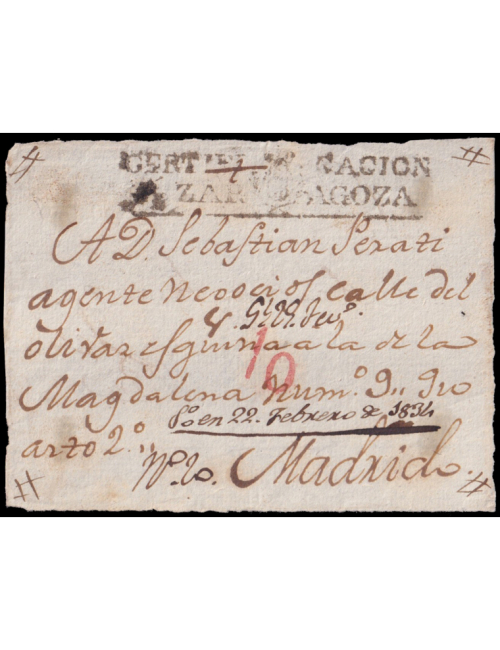 CERTIFICACION
ZARAGOZA
A D. Sebastian Perati
agente Negocios calle del
olivar esquina a la de la
10
Magdalena Num.º 9,, qu
Pº en 22. Febrero de 1834
arto 2.º,,
Madrid.